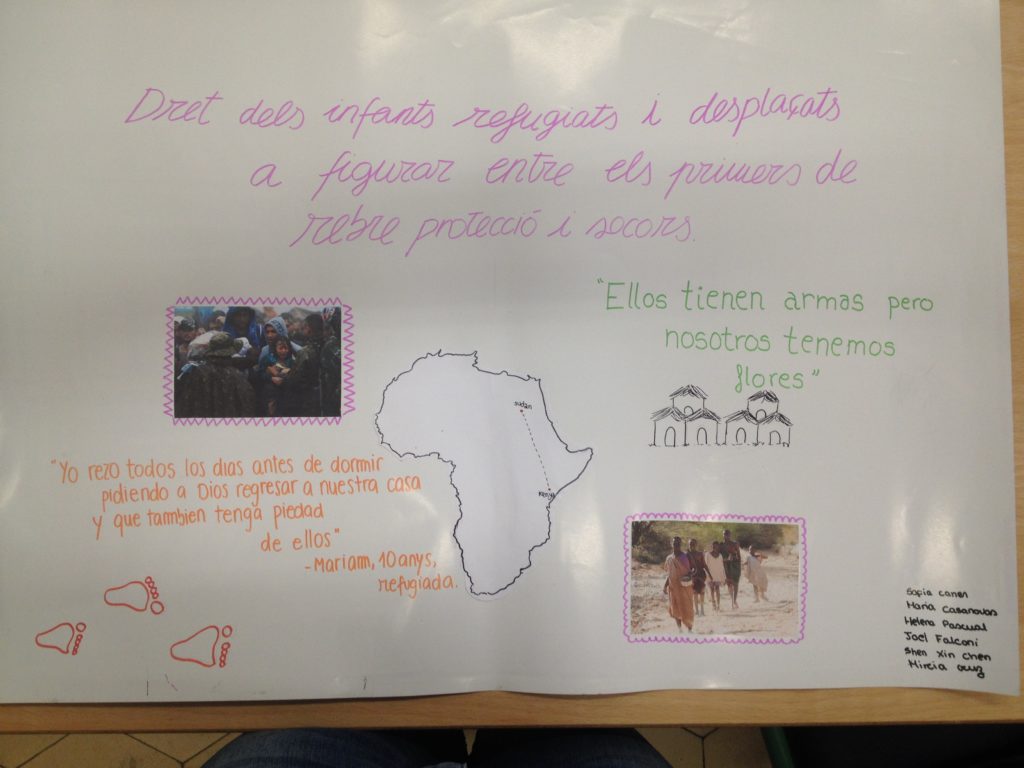 Dret dels infants refugiats i desplaçats
a figurar entre els primers de
rebre protecció i socors.
"Ellos tienen armas pero
nosotros tenemos
flores"
sudan
Kenya
"Yo rezo todos los dias antes de dormir
pidiendo a Dios regresar a nuestra casa
y que tambien tenga piedad
de ellos"
-Mariam, 10 anys,
refugiada.
Maria Casanovas
Helena Pascual
Joel Falconí
Shen Xin Chen
Mireia